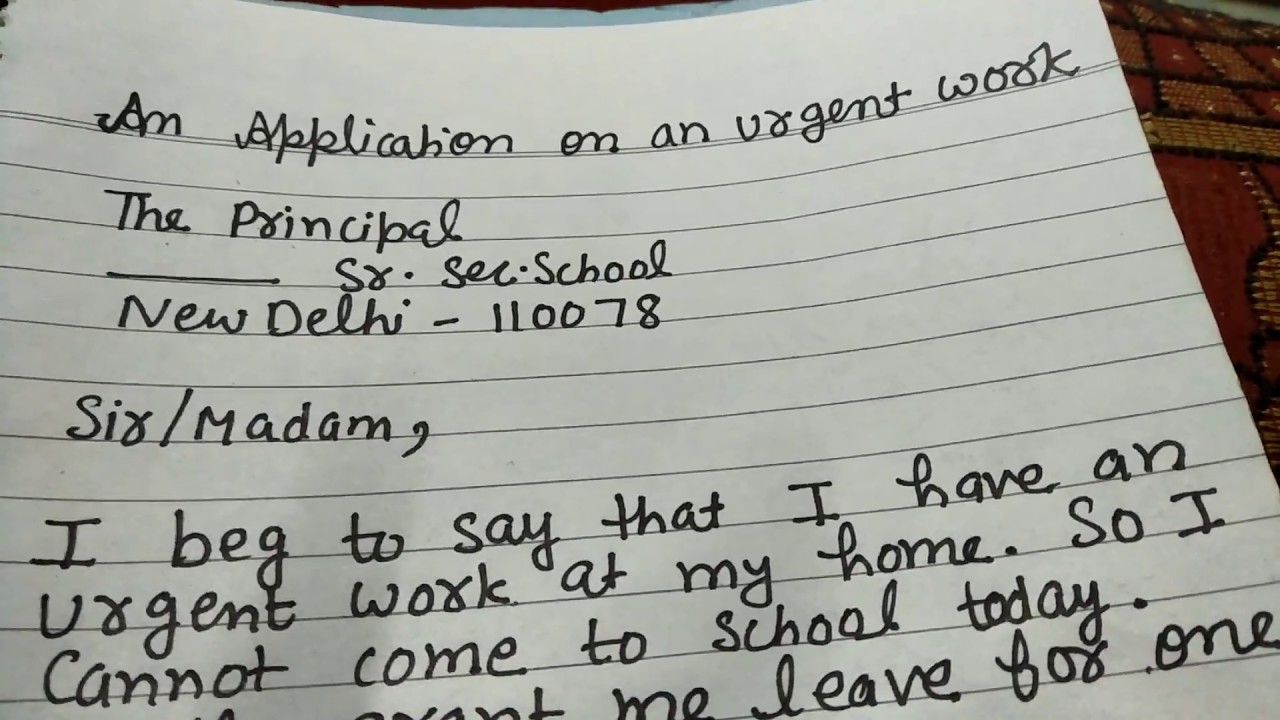 An Application on an urgent work
The Principal
______ Sr. Sec. School
New Delhi - 110078
Sir/Madam,
I beg to say that I have an
urgent work at my home. So I
Cannot come to school today.
grant me leave for one